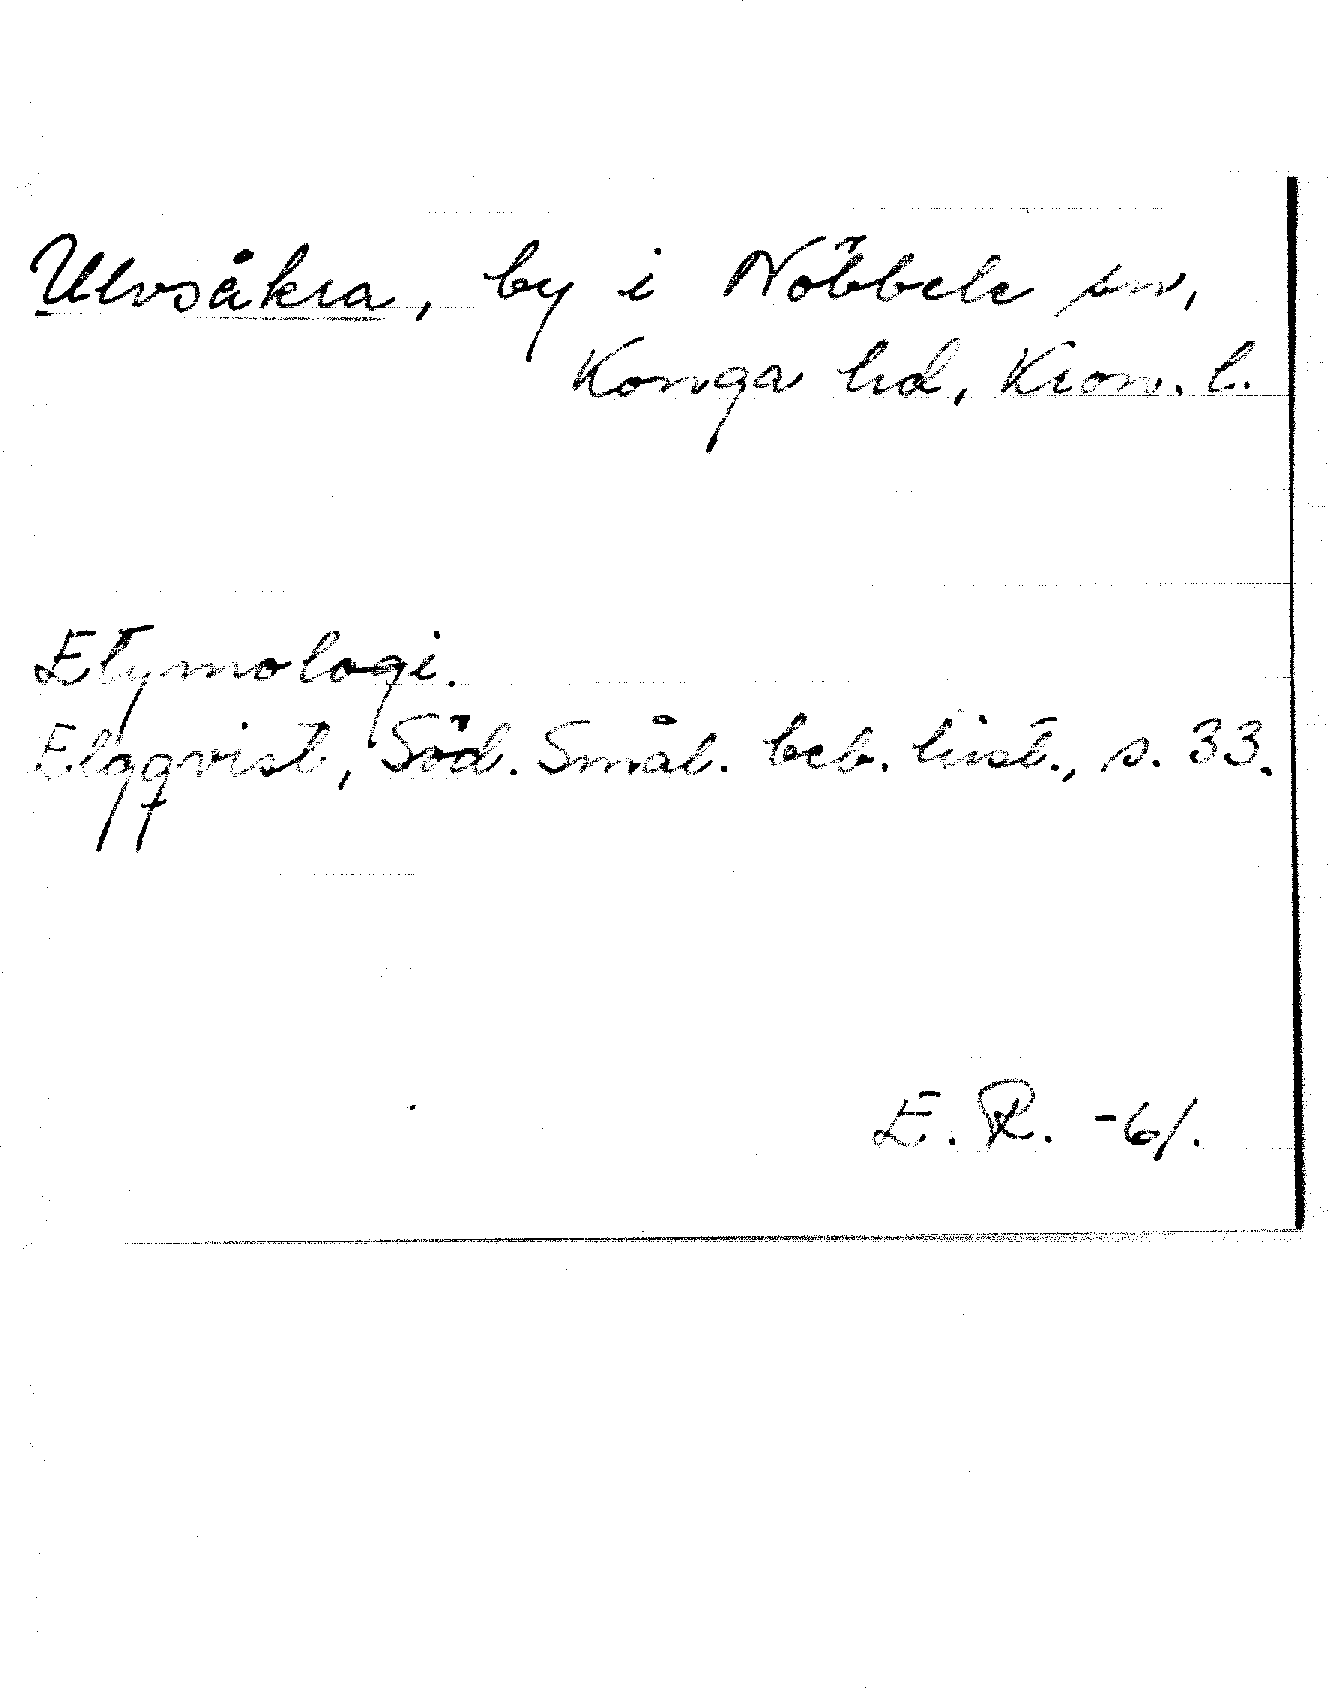 Ulvsåkra, by i Nöbbele sn,
Konga hd, Kron. l.
Etymologi.
Elgqvist, Söd. Smål. beb. hist., s. 33.
E. R. -61.